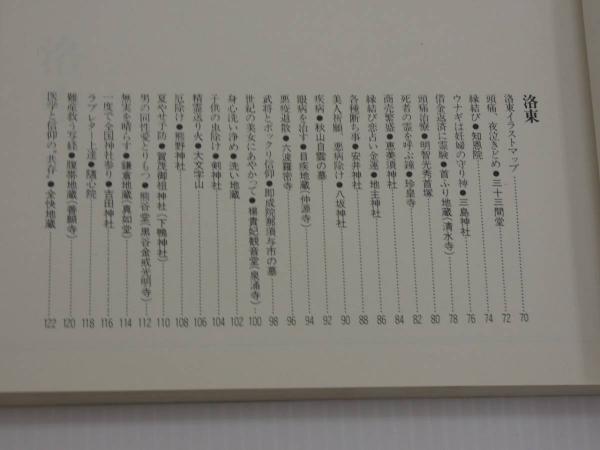 洛東
洛東イラストマップ……70
頭痛、夜泣きどめ●三十三間堂……72
縁結び●知恩院……74
ウナギは妊婦の守り神●三島神社……76
借金返済に霊験●首ふり地蔵(清水寺)……78
頭痛治療●明智光秀首塚……80
死者の霊を呼ぶ鐘●珍皇寺……82
商売繁盛●恵美須神社……84
縁結び恋占い金運●地主神社……86
各種断ち事●安井神社……88
美人祈願、悪病除け●八坂神社……90
疾病●秋山自雲の墓……92
眼病を治す●目疾地蔵(仲源寺)……94
悪疫退散●六波羅密寺……96
武将とポックリ信仰●即成院那須与市の墓……98
世紀の美女にあやかって●楊貴妃観音堂(泉涌寺)……100
身心洗い浄め●洗い地蔵……102
子供の虫除け●剣神社……104
精霊送り火●大文字山……106
厄除け●熊野神社……108
夏やせ予防●賀茂御祖神社(下鴨神社)……110
男の同性愛とりもつ●熊谷堂(黒谷金戒光明寺)……112
無実を晴らす●鎌倉地蔵(真如堂)……114
一度で全国神社参り●吉田神社……116
ラブレター上達●随心院……118
難産救う寿経●腹帯地蔵(善願寺)……120
医学と信仰の〝共存〟●全快地蔵……122